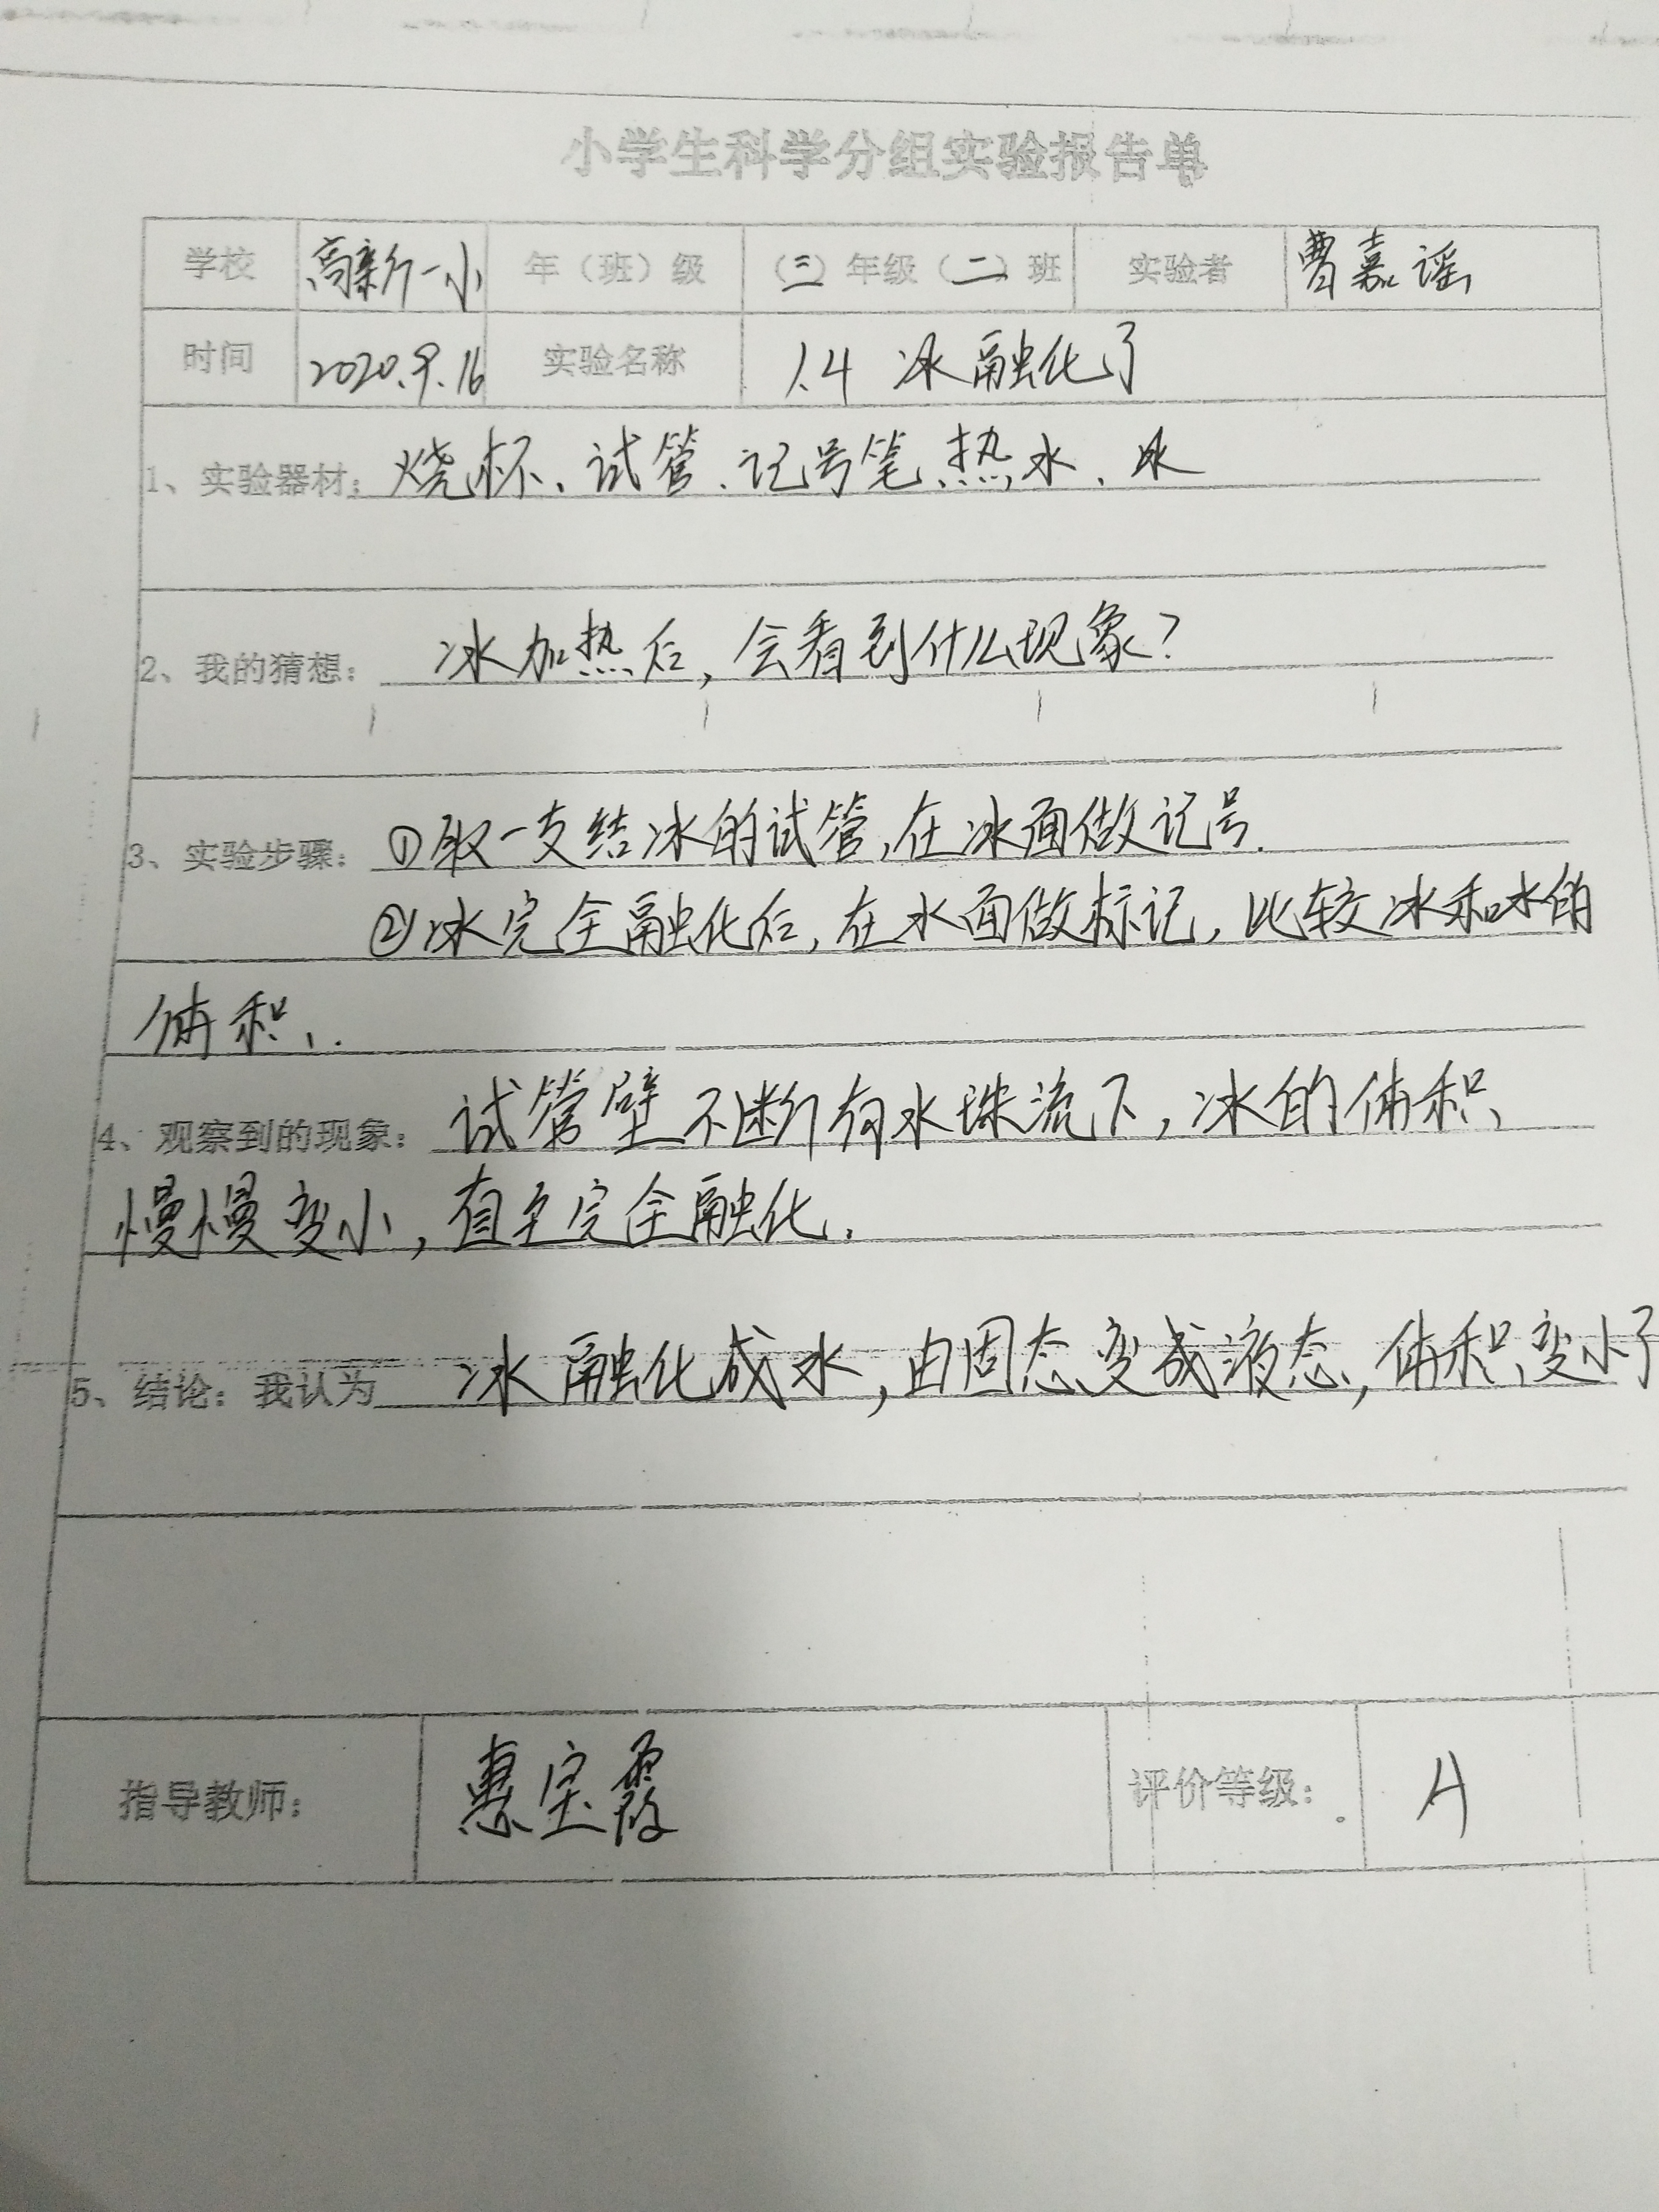 小学生科学分组实验报告单
学校 高新一小 年（班）级 （三）年级（二）班 实验者 曹嘉谣
时间 2020.9.16 实验名称 1.4 冰融化了
1、实验器材：烧杯、试管、记号笔、热水、冰
2、我的猜想：冰加热后，会看到什么现象？
3、实验步骤：①取一支结冰的试管,在冰面做记号.
②冰完全融化后,在水面做标记,比较冰和水的
体积.
4、观察到的现象：试管壁不断有水珠流下,冰的体积
慢慢变小,直至完全融化.
5、结论：我认为 冰融化成水,由固态变成液态,体积变小了
指导教师： 惠宝霞 评价等级： A